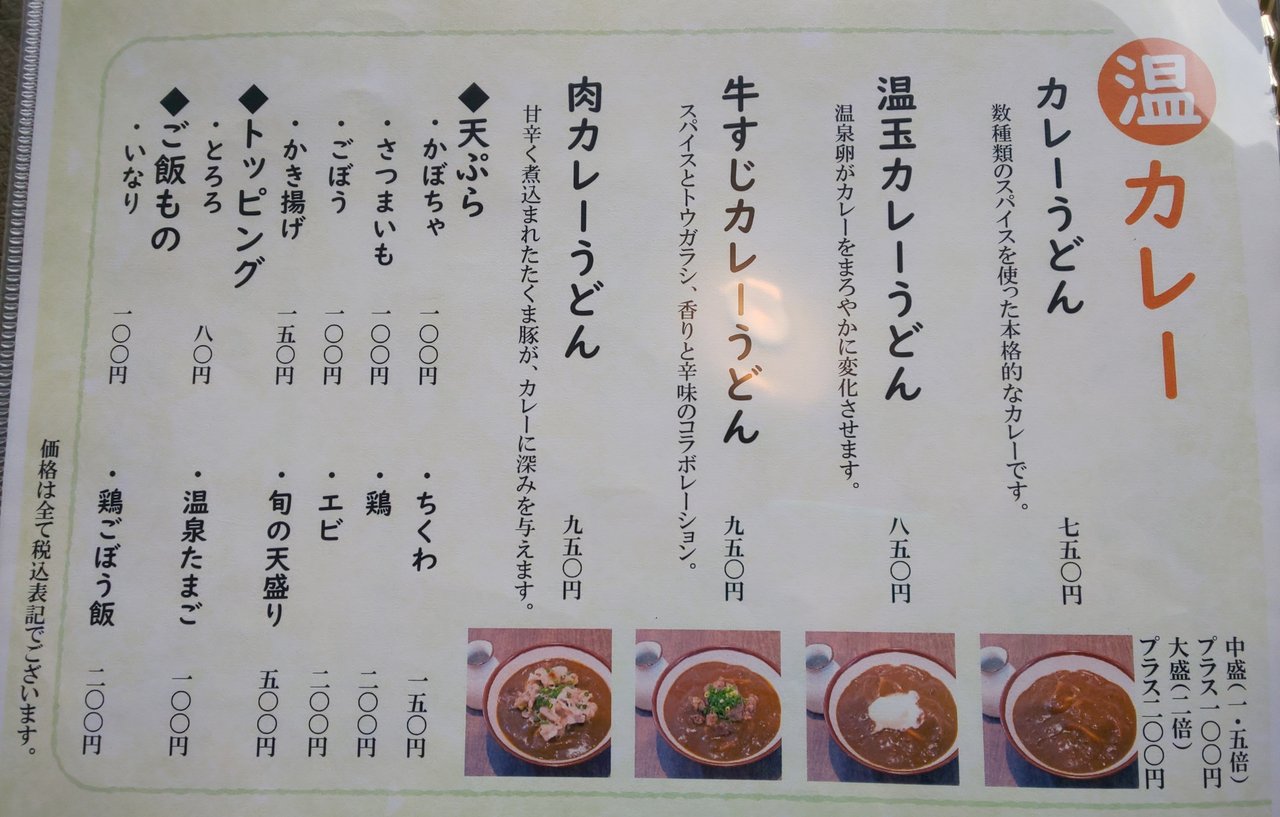 温カレー
中盛(一・五倍)
プラス一〇〇円
大盛(二倍)
プラス二〇〇円
カレーうどん
七五〇円
数種類のスパイスを使った本格的なカレーです。
温玉カレーうどん
八五〇円
温泉卵がカレーをまろやかに変化させます。
牛すじカレーうどん
九五〇円
スパイスとトウガラシ、香りと辛味のコラボレーション。
肉カレーうどん
九五〇円
甘辛く煮込まれたたくま豚が、カレーに深みを与えます。
◆天ぷら
・かぼちゃ 一〇〇円
・ちくわ 一五〇円
・さつまいも 一〇〇円
・鶏 二〇〇円
・ごぼう 一〇〇円
・エビ 二〇〇円
・かき揚げ 一五〇円
・旬の天盛り 五〇〇円
◆トッピング
・とろろ 八〇円
・温泉たまご 一〇〇円
◆ご飯もの
・いなり 一〇〇円
・鶏ごぼう飯 二〇〇円
価格は全て税込表記でございます。